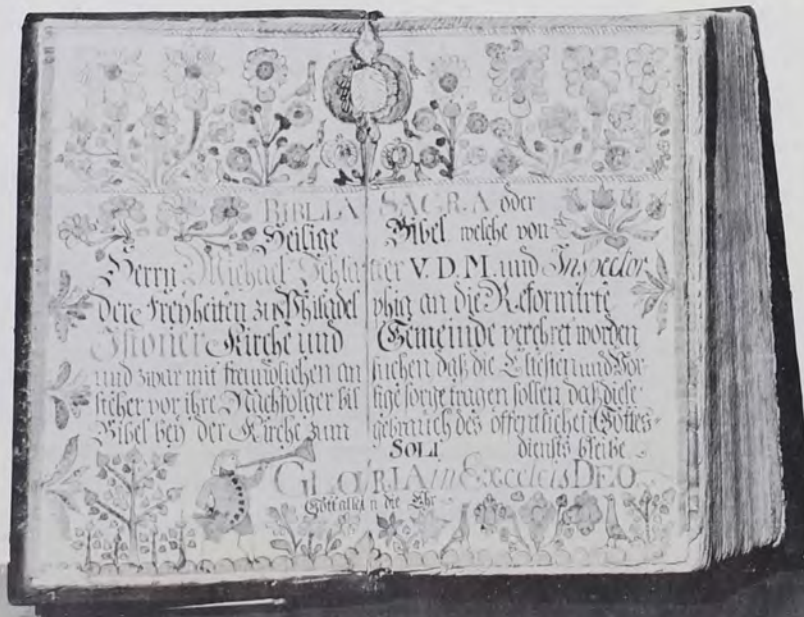 BIBLIA SACRA oder
Heilige Bibel welche von
Herrn Michael Schlatter V. D. M. und Inspector
der Freyheiten zu Philadelphia an die Reformirte
Kirche und Gemeinde verehret worden
und zwar mit freundlichen an suchen daß die Eltesten und Vor-
steher vor ihre Nachfolger bis tige sorge tragen sollen daß diese
Bibel bey der Kirche zum gebrauch des öffentlichen Gottes-
SOLI diensts bleibe
GLORIA in Excelsis DEO
Gott allein die Ehr